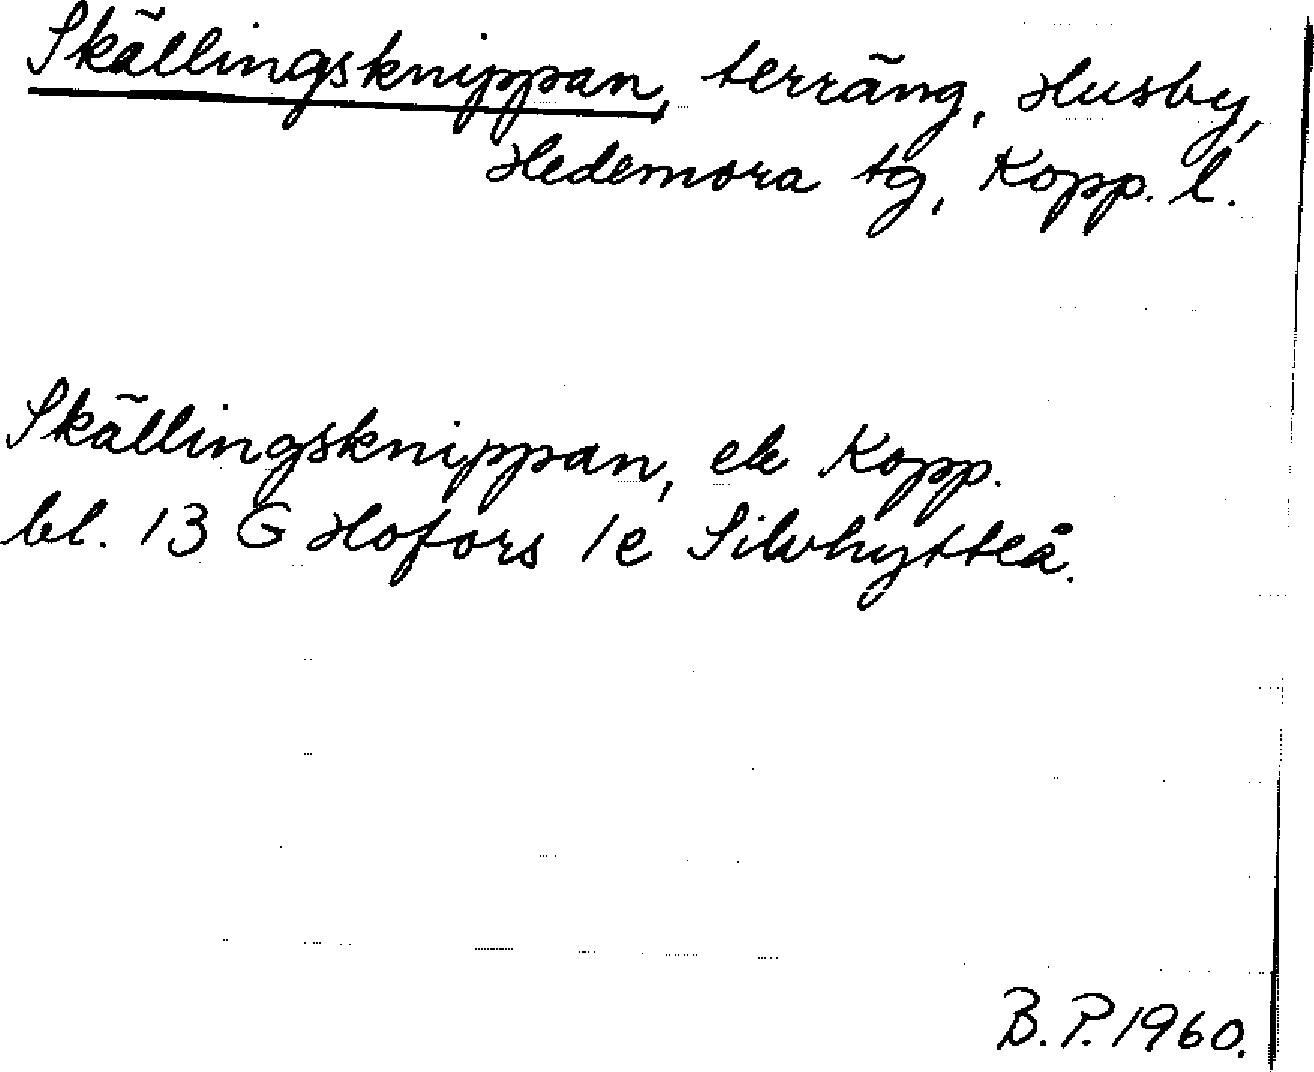 Skällingsknippan, terräng, Husby,
Hedemora tg, Kopp. l.
Skällingsknippan, ek Kopp.
bl. 13 G Hofors 1e Silvhytteå.
B.P. 1960.